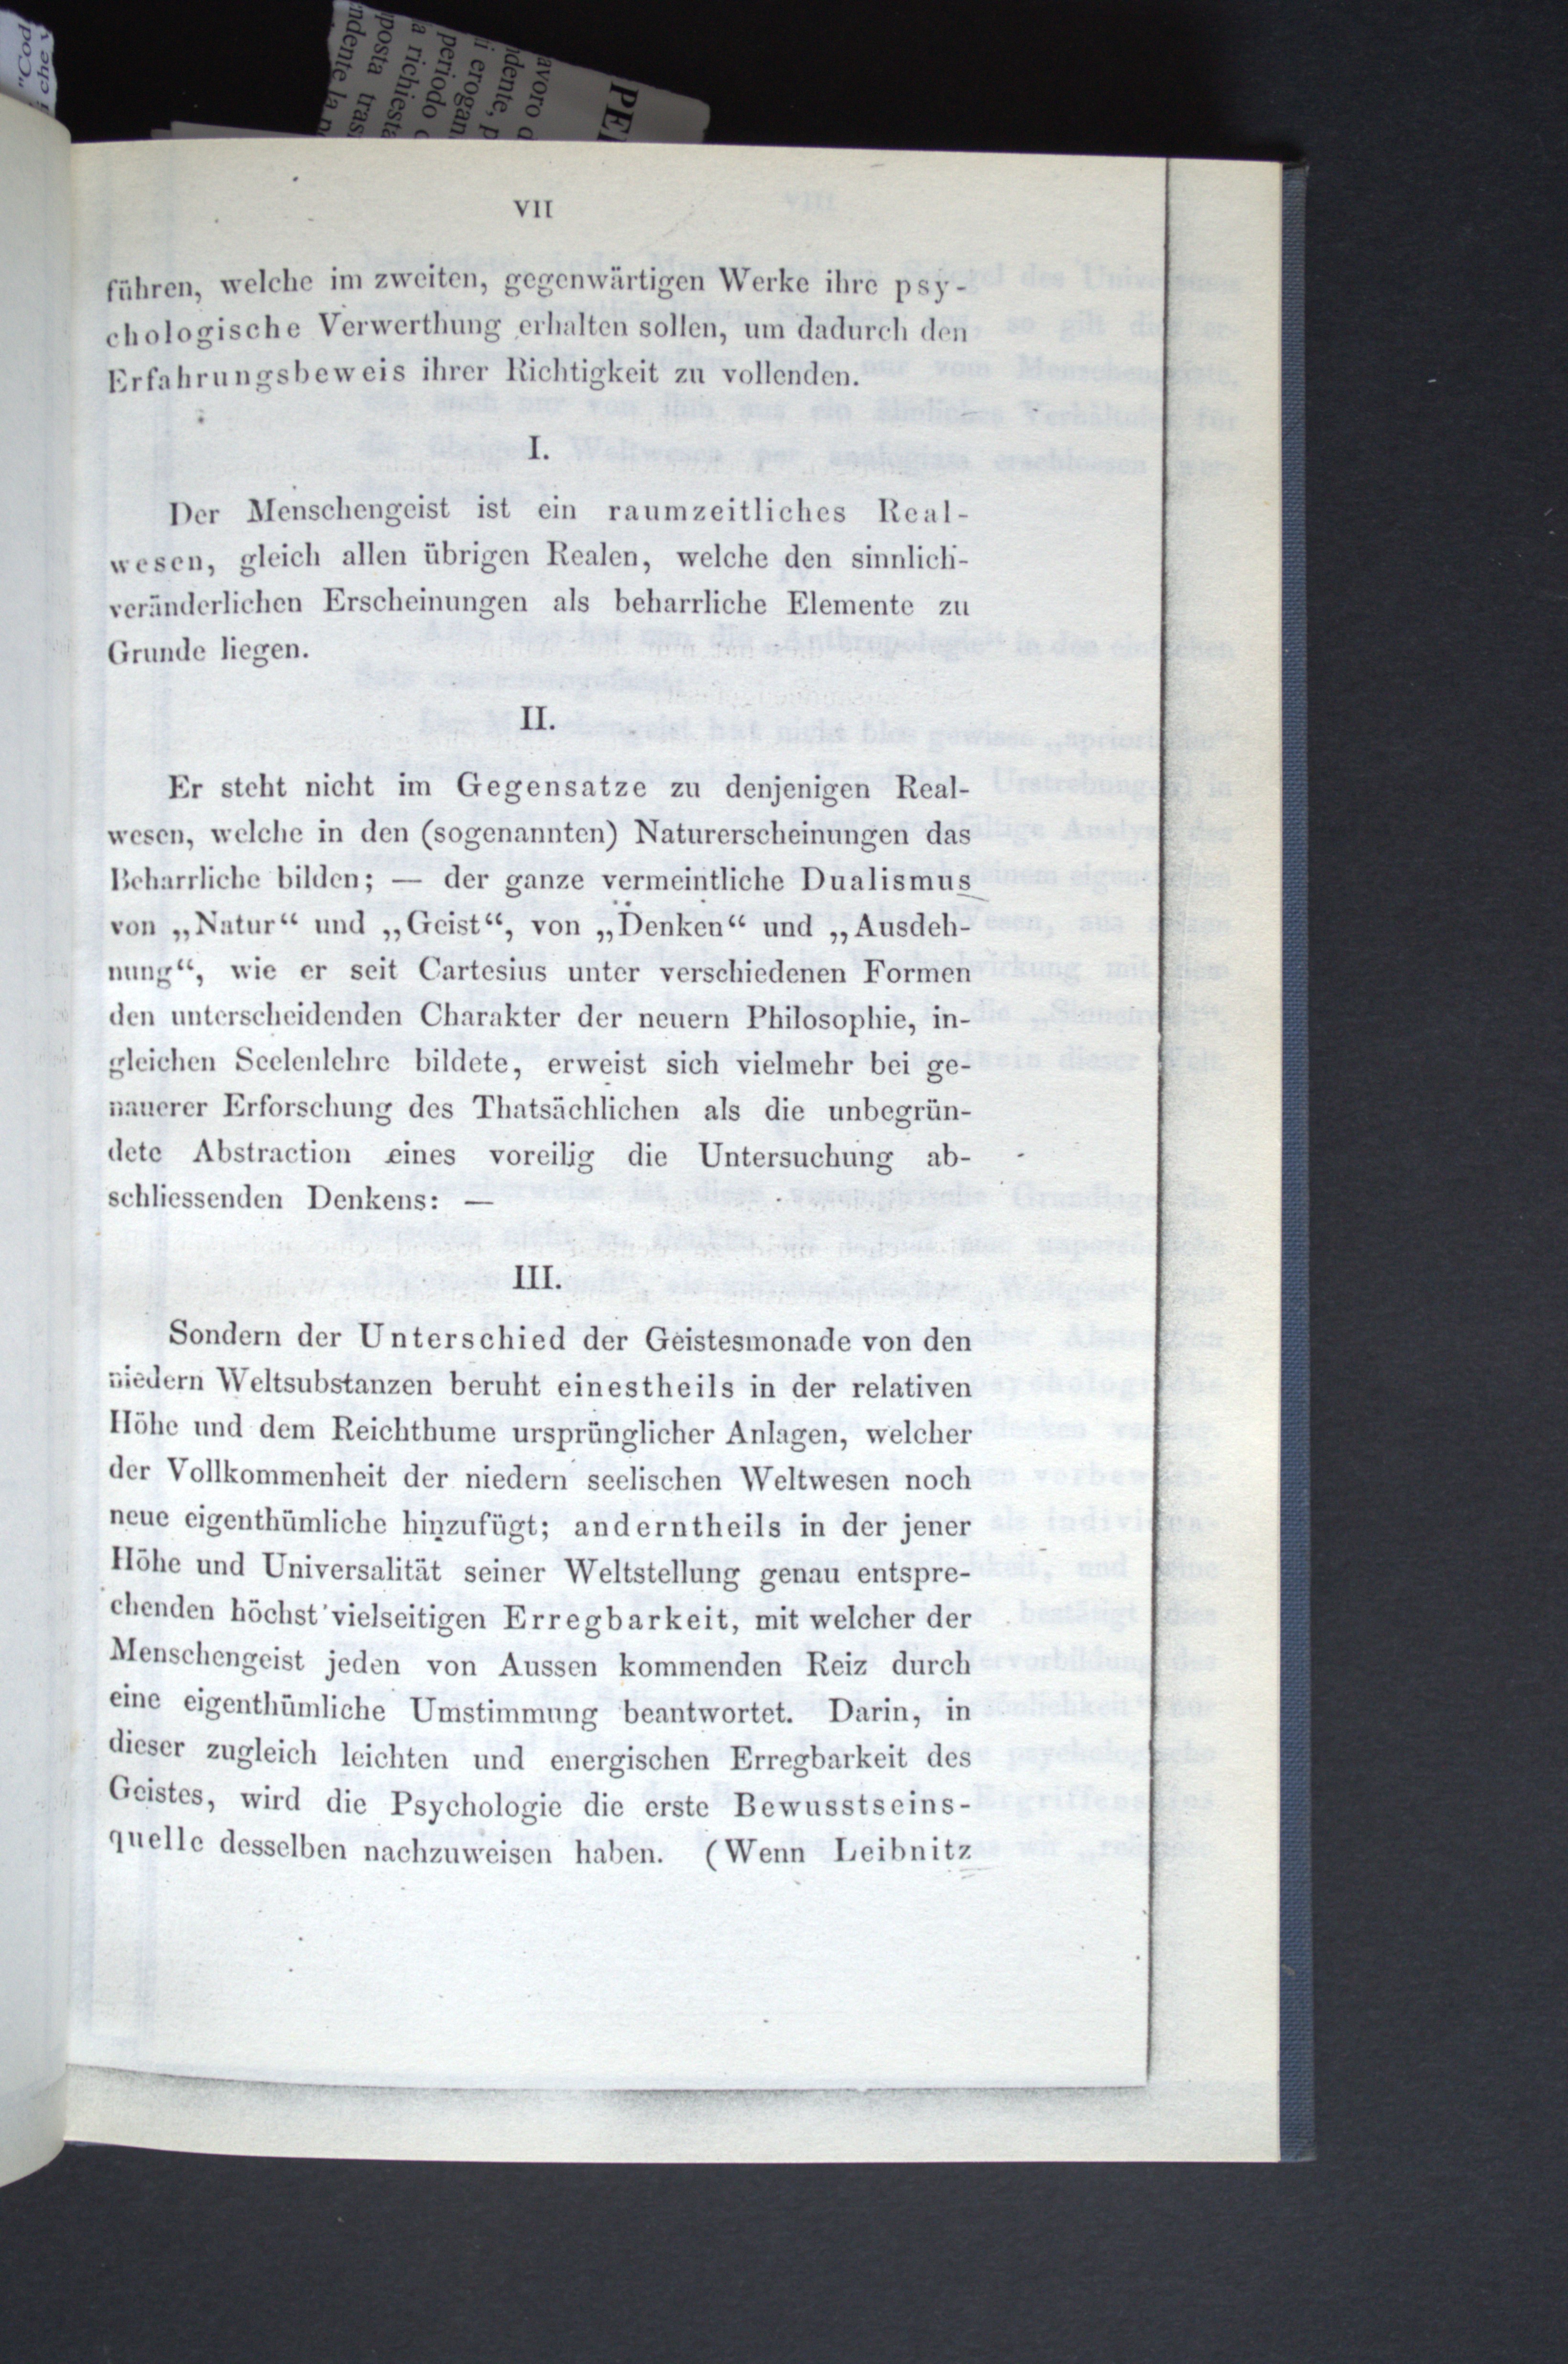 "Cod
i che v
ndente la p
posta tras
a richiesta
periodo c
i erogan
ndente, p
avoro d
PE
VII
führen, welche im zweiten, gegenwärtigen Werke ihre psy-
chologische Verwerthung erhalten sollen, um dadurch den
Erfahrungsbeweis ihrer Richtigkeit zu vollenden.
I.
Der Menschengeist ist ein raumzeitliches Real-
wesen, gleich allen übrigen Realen, welche den sinnlich-
veränderlichen Erscheinungen als beharrliche Elemente zu
Grunde liegen.
II.
Er steht nicht im Gegensatze zu denjenigen Real-
wesen, welche in den (sogenannten) Naturerscheinungen das
Beharrliche bilden; — der ganze vermeintliche Dualismus
von „Natur“ und „Geist“, von „Denken“ und „Ausdeh-
nung“, wie er seit Cartesius unter verschiedenen Formen
den unterscheidenden Charakter der neuern Philosophie, in-
gleichen Seelenlehre bildete, erweist sich vielmehr bei ge-
nauerer Erforschung des Thatsächlichen als die unbegrün-
dete Abstraction eines voreilig die Untersuchung ab-
schliessenden Denkens: —
III.
Sondern der Unterschied der Geistesmonade von den
niedern Weltsubstanzen beruht einestheils in der relativen
Höhe und dem Reichthume ursprünglicher Anlagen, welcher
der Vollkommenheit der niedern seelischen Weltwesen noch
neue eigenthümliche hinzufügt; anderntheils in der jener
Höhe und Universalität seiner Weltstellung genau entspre-
chenden höchst vielseitigen Erregbarkeit, mit welcher der
Menschengeist jeden von Aussen kommenden Reiz durch
eine eigenthümliche Umstimmung beantwortet. Darin, in
dieser zugleich leichten und energischen Erregbarkeit des
Geistes, wird die Psychologie die erste Bewusstseins-
quelle desselben nachzuweisen haben. (Wenn Leibnitz